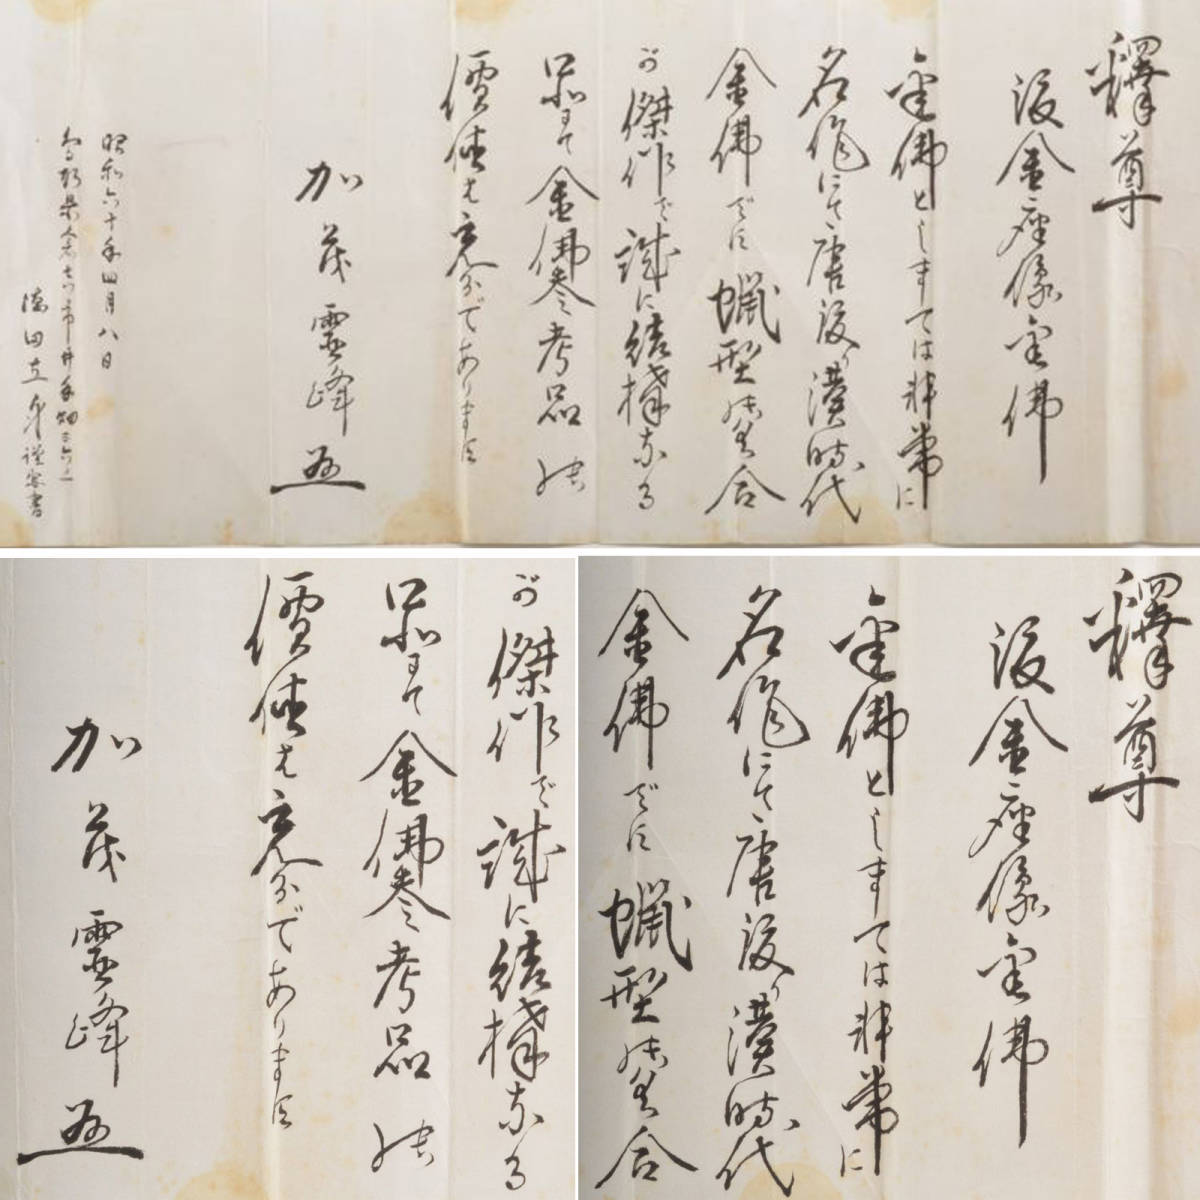 釋尊
渡金座像金佛
金佛としましては非常に
名作にて唐後漢時代
金佛です 蝋型
が傑作で誠に結構なる
品にて金佛参考品
價値は充分であります
加茂靈峰
昭和六十年四月八日
が傑作で誠に結構なる
品にて金佛参考品
價値は充分であります
加茂靈峰
釋尊
渡金座像金佛
金佛としましては非常に
名作にて唐後漢時代
金佛です 蝋型